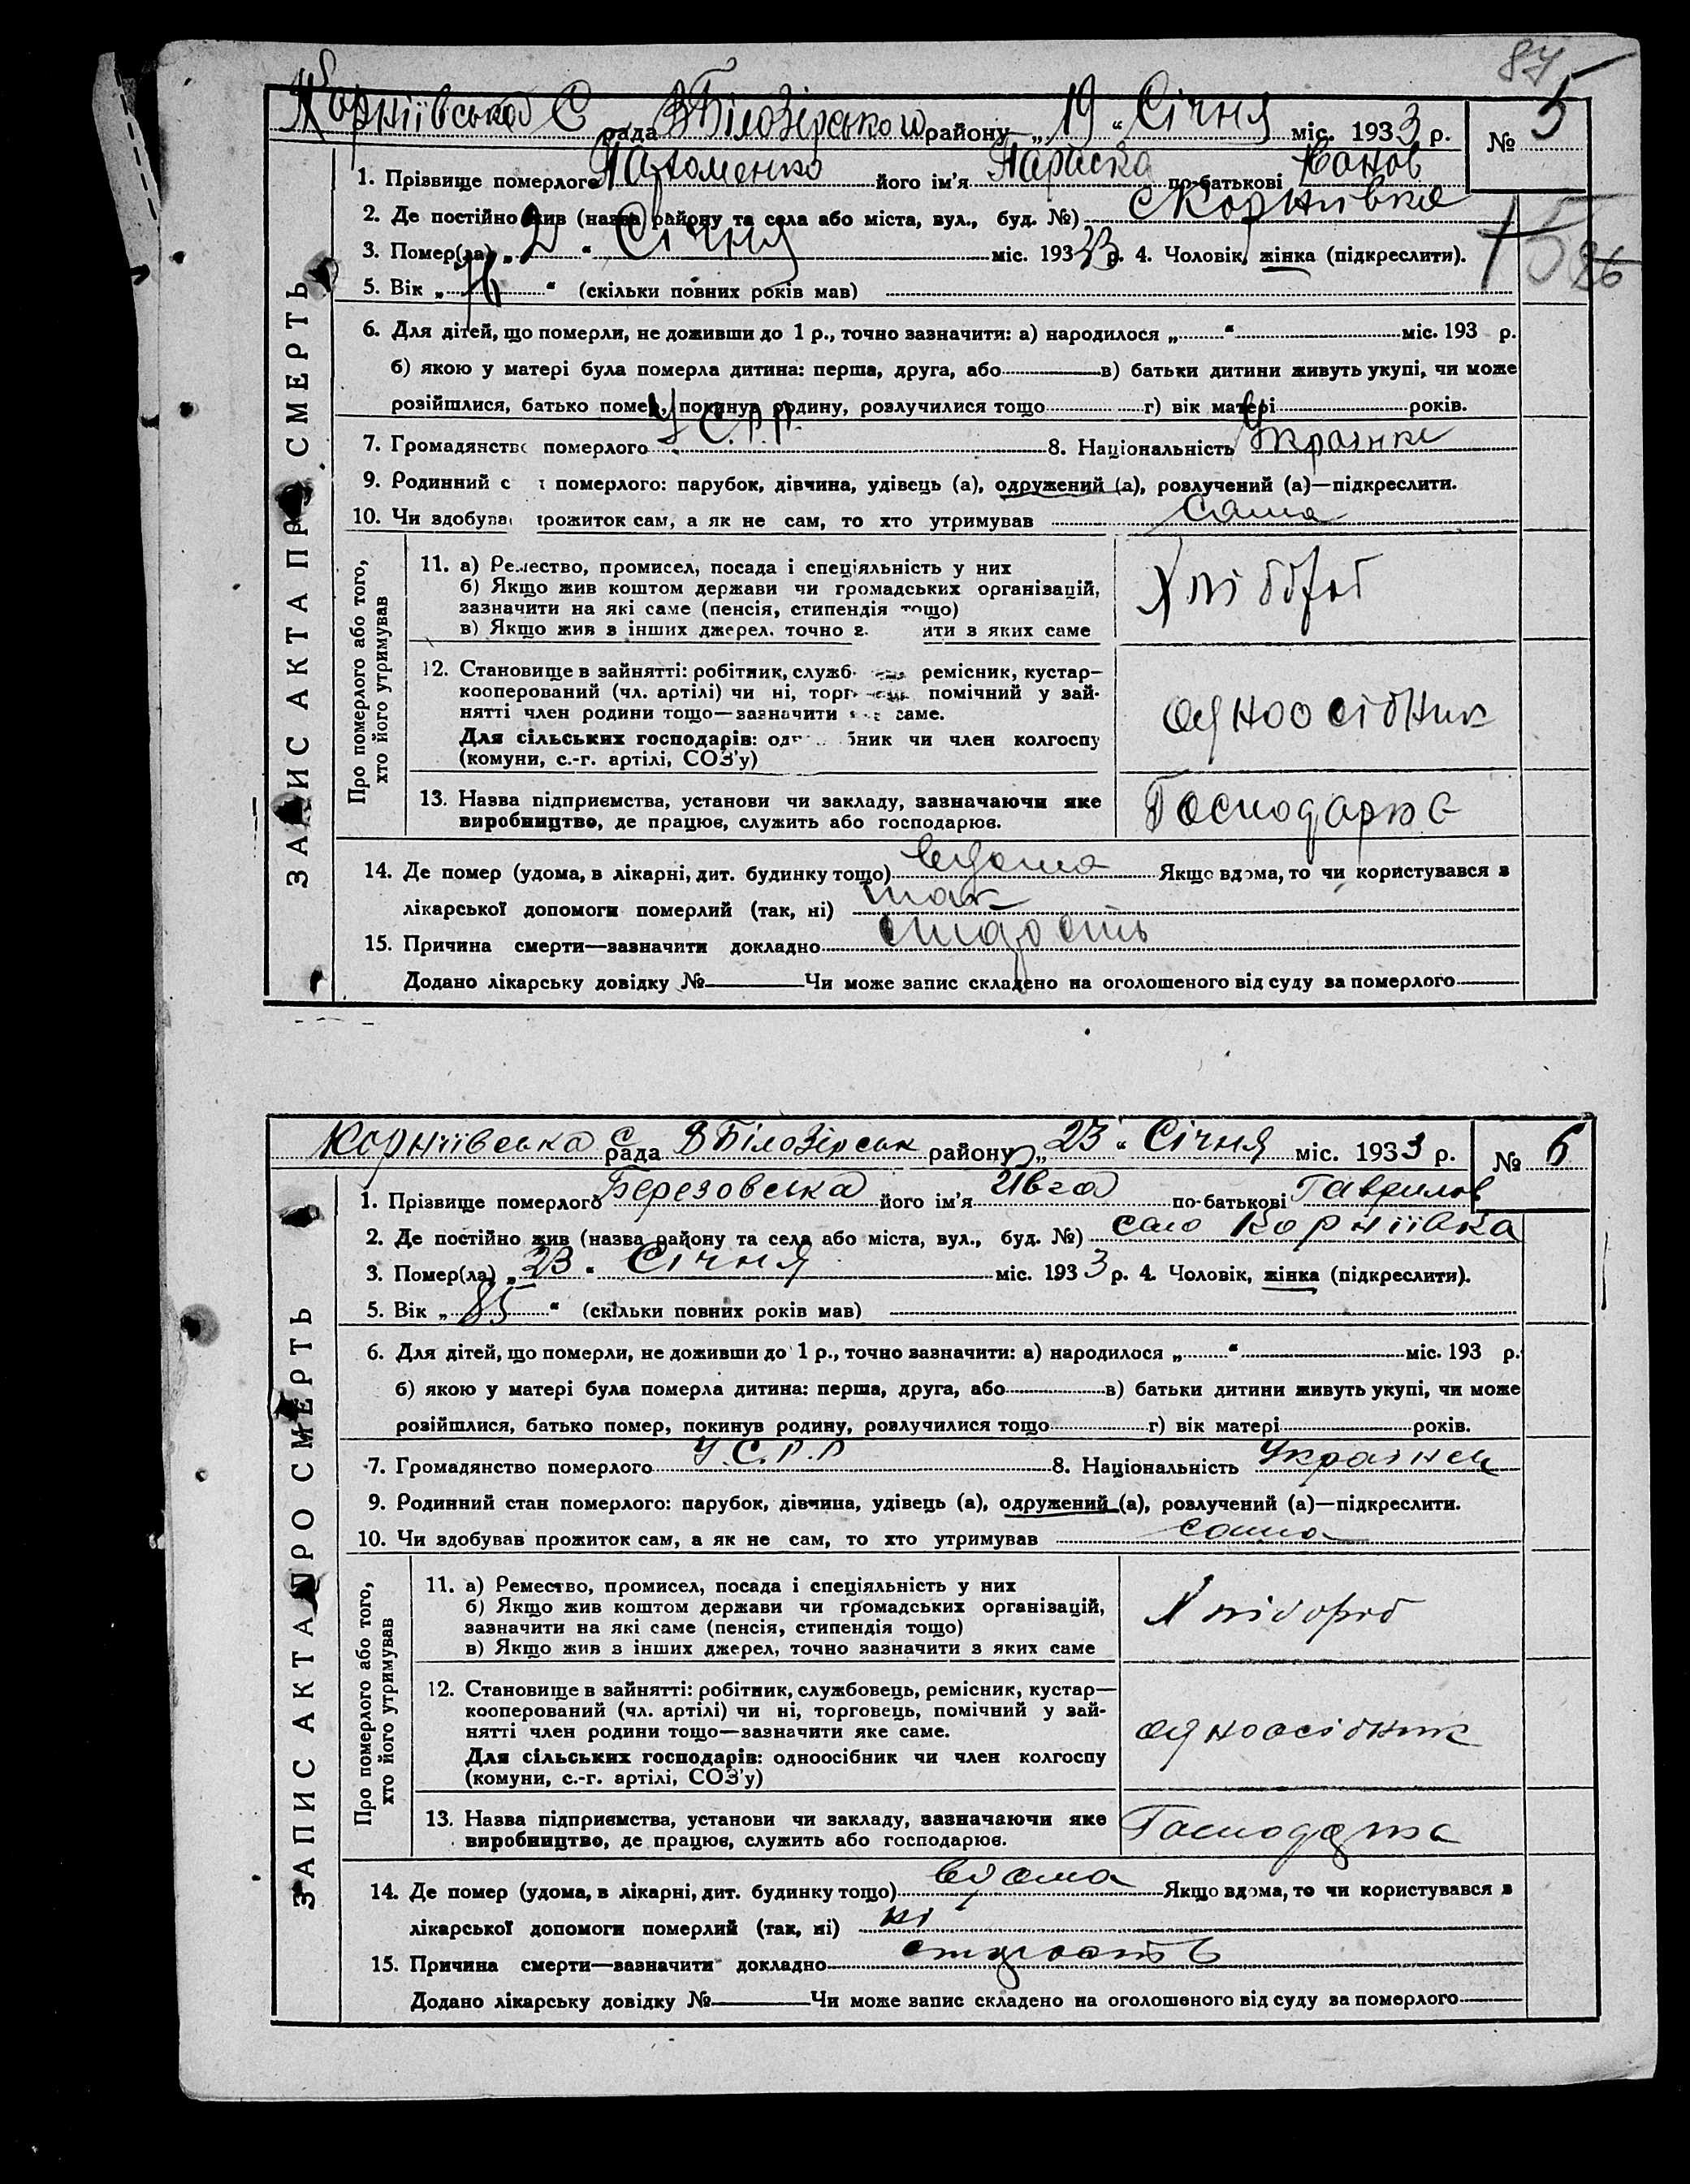 87
Корніївська С рада В Білозірського району „ 19 “ Січня міс. 1933 р. № 5
1. Прізвище померлого Пархоменко його ім’я Параска по-батькові
2. Де постійно жив (назва району та села або міста, вул., буд. №) с Корніївка
3. Помер(ла) „ 2 “ Січня міс. 1933 р. 4. Чоловік, жінка (підкреслити).
5. Вік „ “ (скільки повних років мав)
6. Для дітей, що померли, не доживши до 1 р., точно зазначити: а) народилося „ “ міс. 193 р.
б) якою у матері була померла дитина: перша, друга, або в) батьки дитини живуть укупі, чи може
розійшлися, батько помер, покинув родину, розлучилися тощо г) вік матері років.
7. Громадянство померлого У.С.Р.Р. 8. Національність Українка
9. Родинний с н померлого: парубок, дівчина, удівець (а), одружений (а), розлучений (а)—підкреслити.
10. Чи здобував прожиток сам, а як не сам, то хто утримував сама
ЗАПИС АКТА ПРО СМЕРТЬ
Про померлого або того,
хто його утримував
11. а) Ремество, промисел, посада і спеціяльність у них
б) Якщо жив коштом держави чи громадських організацій,
зазначити на які саме (пенсія, стипендія тощо)
в) Якщо жив з інших джерел, точно з ити з яких саме
Хлібороб
12. Становище в зайнятті: робітник, служб ремісник, кустар—
кооперований (чл. артілі) чи ні, торг помічний у зай-
нятті член родини тощо—зазначити яке саме.
Для сільських господарів: од бник чи член колгоспу
(комуни, с.-г. артілі, СОЗ’у)
одноосібник
13. Назва підприємства, установи чи закладу, зазначаючи яке
виробництво, де працює, служить або господарює.
Господарка
14. Де помер (удома, в лікарні, дит. будинку тощо) вдома Якщо вдома, то чи користувався з
лікарської допомоги померлий (так, ні) так
15. Причина смерти—зазначити докладно старость
Додано лікарську довідку № Чи може запис складено на оголошеного від суду за померлого
Корніївська с рада В Білозірськ району „ 23 “ Січня міс. 1933 р. № 6
1. Прізвище померлого Березовська його ім’я Ивга по-батькові Гаврилов
2. Де постійно жив (назва району та села або міста, вул., буд. №) село Корніївка
3. Помер(ла) „ 23 “ Січня міс. 1933 р. 4. Чоловік, жінка (підкреслити).
5. Вік „ 85 “ (скільки повних років мав)
6. Для дітей, що померли, не доживши до 1 р., точно зазначити: а) народилося „ “ міс. 193 р.
б) якою у матері була померла дитина: перша, друга, або в) батьки дитини живуть укупі, чи може
розійшлися, батько помер, покинув родину, розлучилися тощо г) вік матері років.
7. Громадянство померлого У.С.Р.Р 8. Національність
9. Родинний стан померлого: парубок, дівчина, удівець (а), одружений (а), розлучений (а)—підкреслити.
10. Чи здобував прожиток сам, а як не сам, то хто утримував сама
ЗАПИС АКТА ПРО СМЕРТЬ
Про померлого або того,
хто його утримував
11. а) Ремество, промисел, посада і спеціяльність у них
б) Якщо жив коштом держави чи громадських організацій,
зазначити на які саме (пенсія, стипендія тощо)
в) Якщо жив з інших джерел, точно зазначити з яких саме
Хлібороб
12. Становище в зайнятті: робітник, службовець, ремісник, кустар—
кооперований (чл. артілі) чи ні, торговець, помічний у зай-
нятті член родини тощо—зазначити яке саме.
Для сільських господарів: одноосібник чи член колгоспу
(комуни, с.-г. артілі, СОЗ’у)
одноосібник
13. Назва підприємства, установи чи закладу, зазначаючи яке
виробництво, де працює, служить або господарює.
Господарка
14. Де помер (удома, в лікарні, дит. будинку тощо) вдома Якщо вдома, то чи користувався з
лікарської допомоги померлий (так, ні) ні
15. Причина смерти—зазначити докладно старость
Додано лікарську довідку № Чи може запис складено на оголошеного від суду за померлого